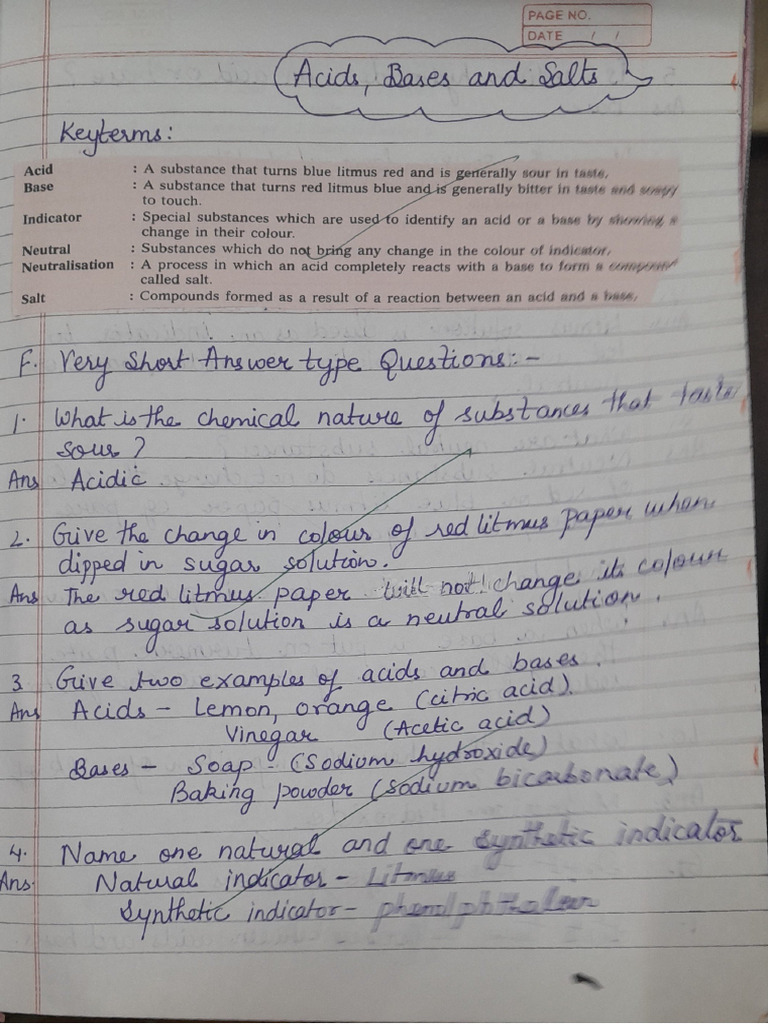 PAGE NO.
DATE / /
Acids, Bases and Salts
Keyterms:
Acid : A substance that turns blue litmus red and is generally sour in taste.
Base : A substance that turns red litmus blue and is generally bitter in taste and soapy
to touch.
Indicator : Special substances which are used to identify an acid or a base by showing a
change in their colour.
Neutral : Substances which do not bring any change in the colour of indicator.
Neutralisation : A process in which an acid completely reacts with a base to form a compound
called salt.
Salt : Compounds formed as a result of a reaction between an acid and a base.
F. Very Short Answer type Questions:-
1. What is the chemical nature of substances that taste
sour?
Ans Acidic
2. Give the change in colour of red litmus paper when
dipped in sugar solution.
Ans The red litmus paper will not change its colour
as sugar solution is a neutral solution.
3 Give two examples of acids and bases.
Ans Acids - Lemon, orange (citric acid).
Vinegar (Acetic acid)
Bases - Soap - (Sodium hydroxide)
Baking powder (sodium bicarbonate)
4. Name one natural and one synthetic indicator
Ans. Natural indicator - Litmus
Synthetic indicator -